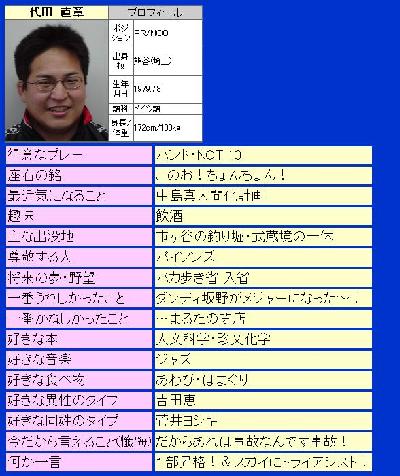 代田 直章
プロフィール
ポジション
PR/NO8
出身校
熊谷(埼玉)
生年月日
1979.7.8
語科
ドイツ語
身長/体重
172cm/100kg
得意なプレー
バンド・NOT 10
座右の銘
このお!ちょんちょん!
最近気になること
中島真人間化計画
趣味
飲酒
主な出没地
市ヶ谷の釣り堀・武蔵境の一休
尊敬する人
パイソンズ
将来の夢・野望
バカ歩き省 入省
一番うれしかったこと
ダンディ坂野がメジャーになった~、
一番かなしかったこと
…まるたの閉店
好きな本
人文科学・珍文化学
好きな音楽
ジャズ
好きな食べ物
あわび・はまぐり
好きな異性のタイプ
吉田恵
好きな同姓のタイプ
菅井ヨシキ
今だから言えること(懺悔)
だからあれは事故なんです事故!
何か一言
1部昇格!&スカイ・ト・ライアスト